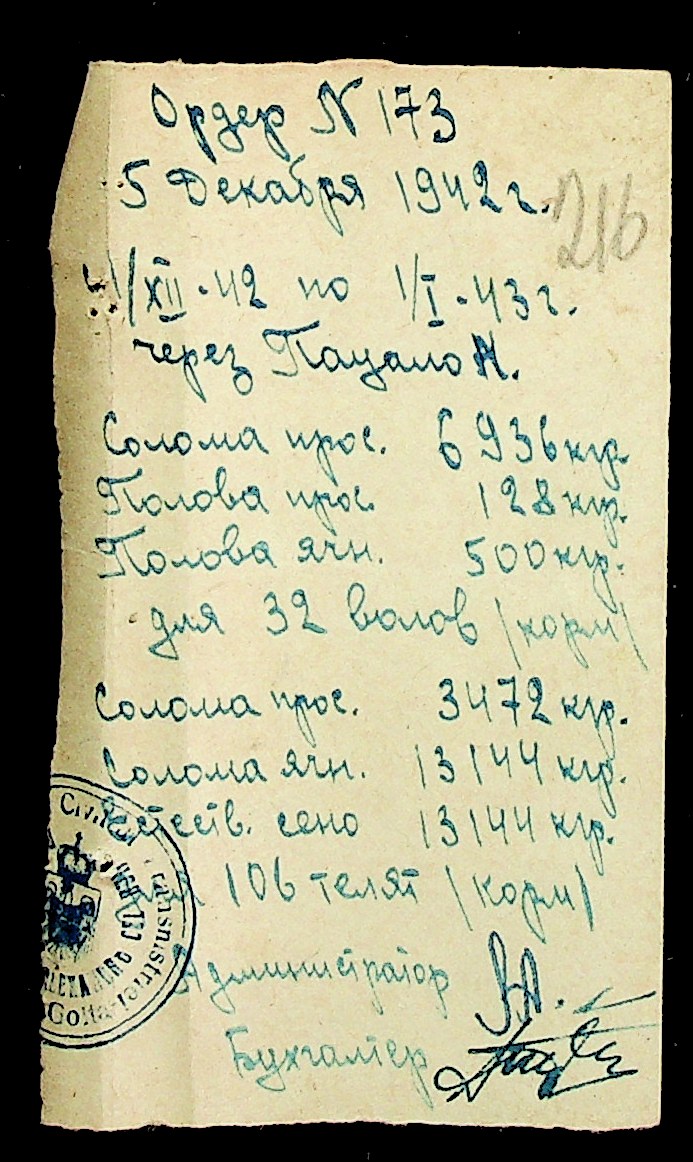 Ордер N 173
5 Декабря 1942 г.
216
1/XII-42 по 1/I-43 г.
через Пацало Н.
Солома прос. 6936 кгр.
Полова прос. 128 кгр.
Полова ячн. 500 кгр.
для 32 волов /корм/
Солома прос. 3472 кгр.
Солома ячн. 13144 кгр.
Естеств. сено 13144 кгр.
для 106 телят /корм/
Администратор
Бухгалтер
Transnistriei
Golta